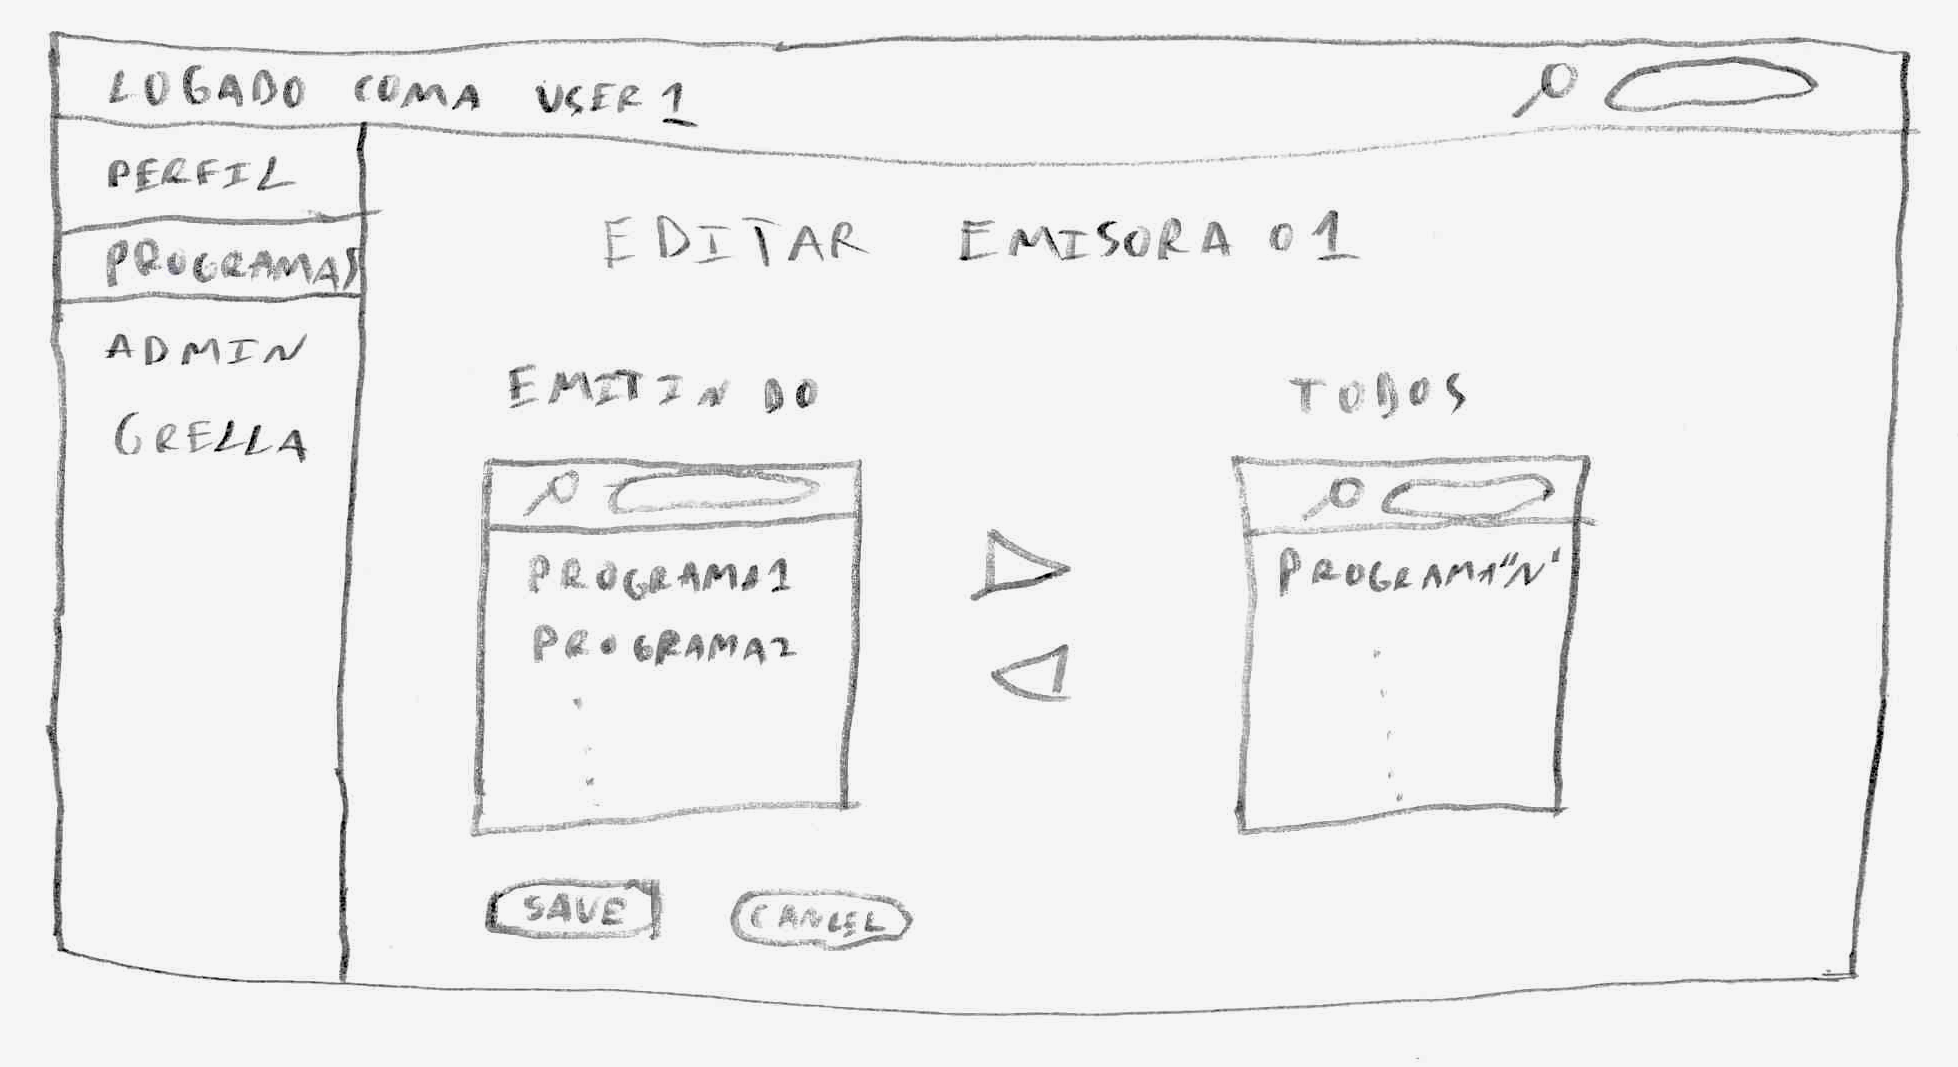 LOGADO COMA USER 1
PERFIL
PROGRAMAS
ADMIN
GRELLA
EDITAR EMISORA 01
EMITINDO
PROGRAMA1
PROGRAMA2
TODOS
PROGRAMA"N"
SAVE
CANCEL